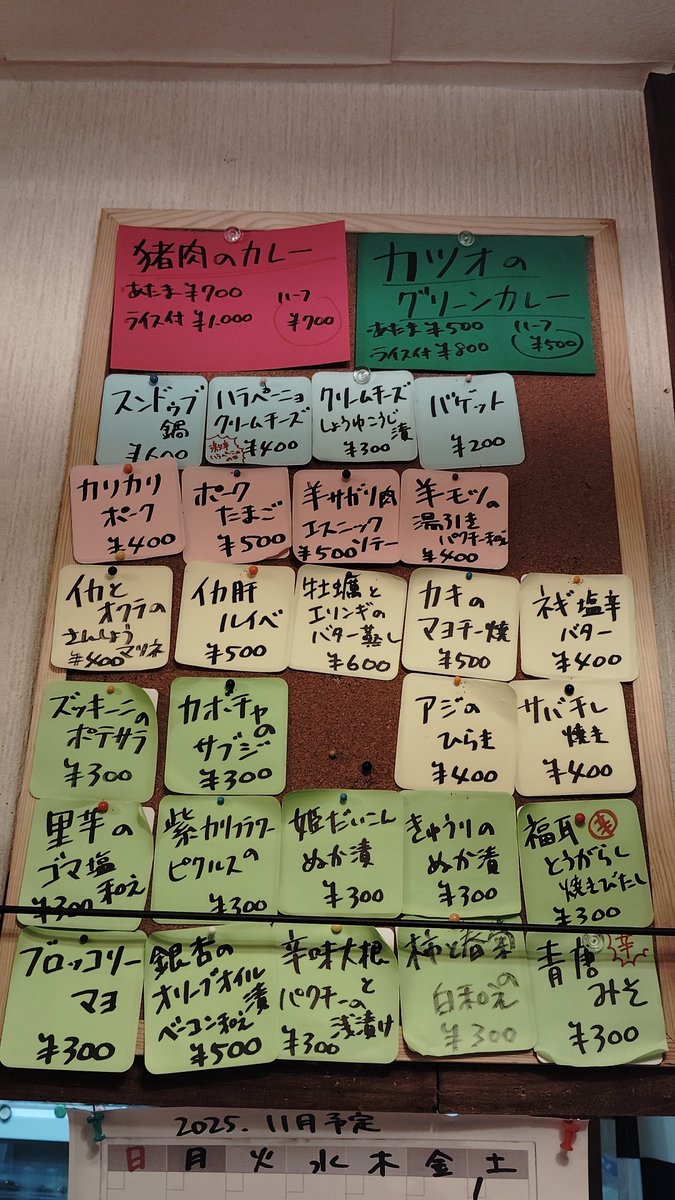 猪肉のカレー
あたま¥700
ライス付¥1,000
ハーフ
¥700
カツオの
グリーンカレー
あたま¥500
ライス付¥800
ハーフ
¥500
スンドゥブ
鍋
¥600
ハラペーニョ
クリームチーズ
¥400
クリームチーズ
しょうゆこうじ
漬
¥300
バゲット
¥200
カリカリ
ポーク
¥400
ポーク
たまご
¥500
羊サガリ肉
エスニック
ソテー
¥500
羊モツの
湯引き
パクチー和え
¥400
イカと
オクラの
さんしょう
マリネ
¥400
イカ肝
ルイベ
¥500
牡蠣と
エリンギの
バター蒸し
¥600
カキの
マヨチー焼
¥500
ネギ塩辛
バター
¥400
ズッキーニの
ポテサラ
¥300
カボチャの
サブジ
¥300
アジの
ひらき
¥400
サバ干し
焼き
¥400
里芋の
ゴマ塩
和え
¥300
紫カリフラワーの
ピクルス
¥300
姫だいこん
ぬか漬
¥300
きゅうりの
ぬか漬
¥300
福耳 辛
とうがらし
焼きびたし
¥300
ブロッコリー
マヨ
¥300
銀杏の
オリーブオイル
漬
ベーコン和え
¥500
辛味大根と
パクチーの
浅漬け
¥300
柿と春菊の
白和え
¥300
青唐 辛
みそ
¥300
2025.11月予定
日 月 火 水 木 金 土